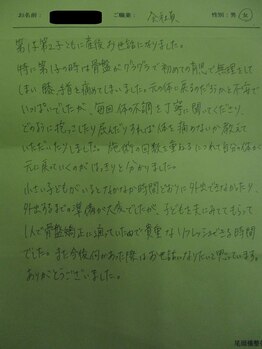 お名前： ご職業： 会社員 性別：男・女
第1子第2子ともに産後お世話になりました。
特に第1子の時は骨盤がグラグラで初めての育児で無理をして
しまい膝、手首を痛めてしまいました。元の体に戻るのだろうかと不安で
いっぱいでしたが、毎回体の不調を丁寧に聞いてくださり
どのように抱っこしたり屈んだりすれば体を痛めないか教えて
いただいたりしました。施術の回数を重ねるにつれて自分の体が
元に戻っていくのがはっきりと分かりました。
小さい子どもがいるとなかなか時間どおりに外出できなかったり、
外出するまでの準備が大変でしたが、子どもをまにみててもらって
1人で骨盤矯正に通っていたので貴重なリフレッシュができる時間
でした。また今後何かあった際はお世話になりたいと思っています。
ありがとうございました。
尾頭橋整骨